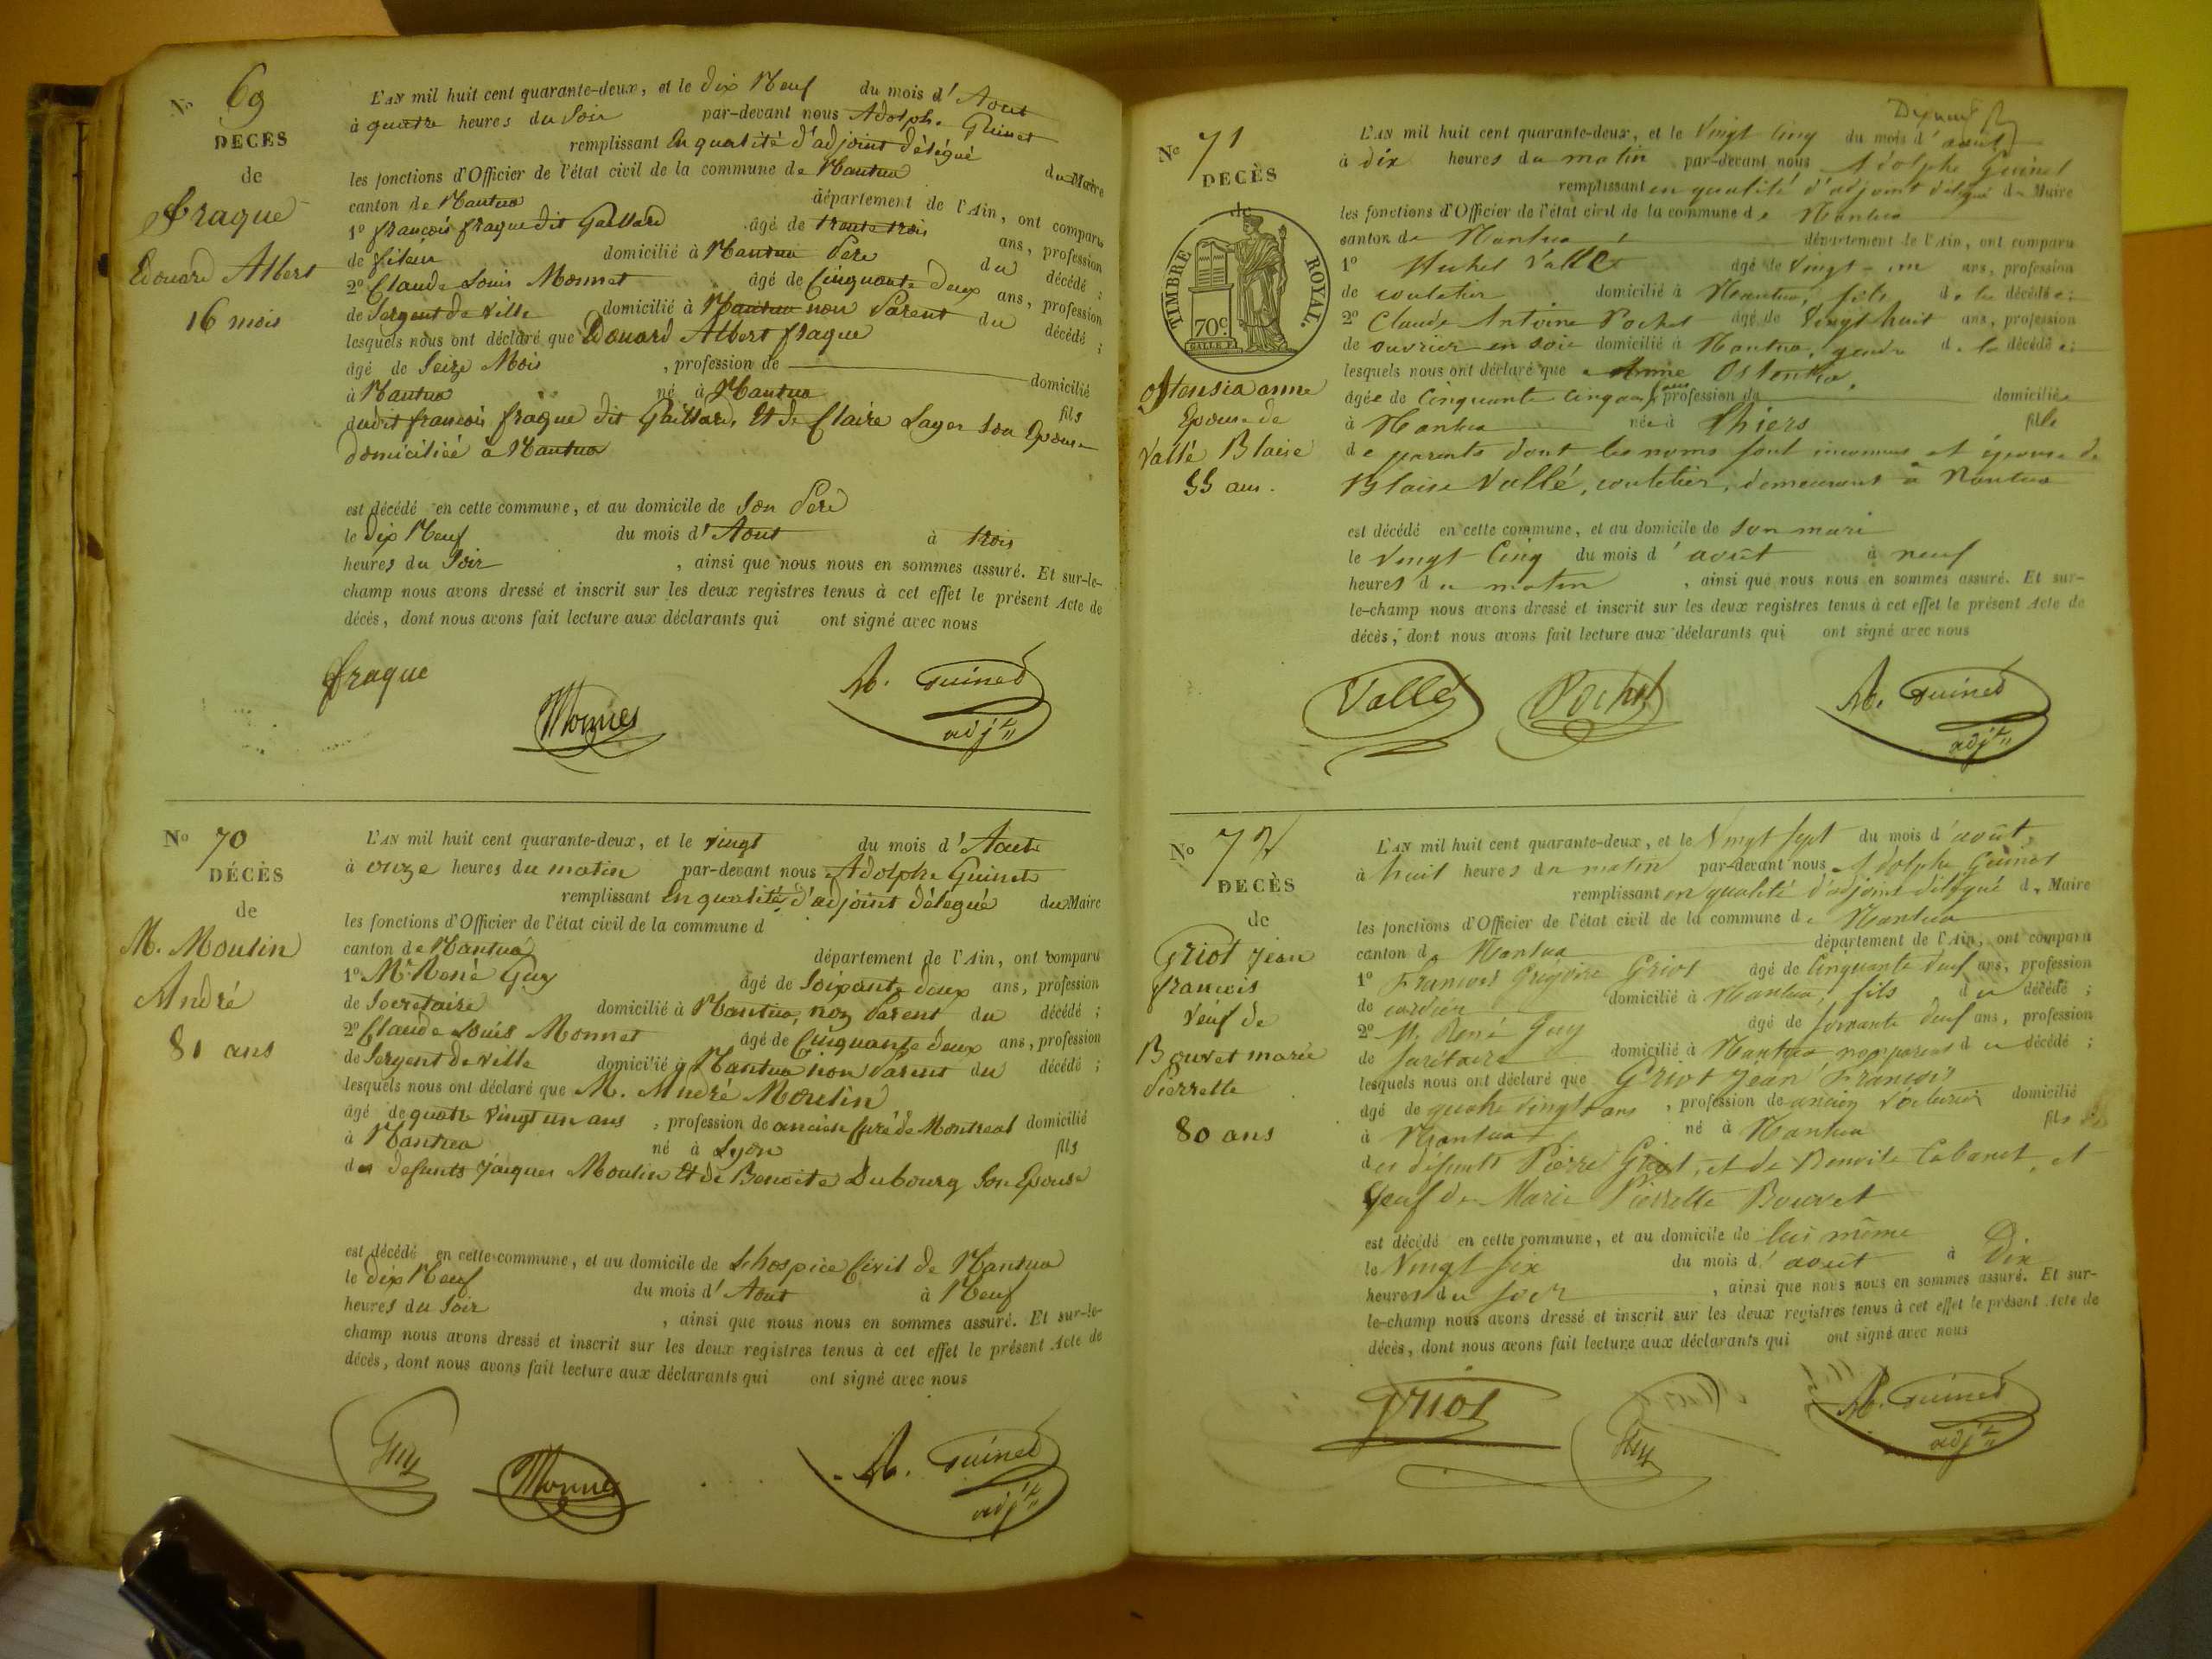 No 69
DÉCÈS
de
fraque
Edouard Albert
16 mois
L'AN mil huit cent quarante-deux, et le dix Neuf du mois d'Aout
à quatre heures du Soir par-devant nous Adolphe Guinet
remplissant en qualité d'adjoint délégué du Maire
les fonctions d'Officier de l'état civil de la commune de Nantua
canton de Nantua département de l'Ain, ont comparu
1o françois fraque dit Gaillard âgé de trente trois ans, profession
de domicilié à Nantua Père du décédé ;
2o Claude Louis Monnet âgé de Cinquante deux ans, profession
de Sergent de ville domicilié à Nantua non Parent du décédé ;
lesquels nous ont déclaré que Edouard Albert fraque
âgé de Seize Mois , profession de domicilié
à Nantua né à Nantua fils
dudit françois fraque dit Gaillard, Et de Claire Lager son Epouse
domiciliée à Nantua
est décédé en cette commune, et au domicile de Son Père
le dix Neuf du mois d'Aout à trois
heures du Soir , ainsi que nous nous en sommes assuré. Et sur-le-
champ nous avons dressé et inscrit sur les deux registres tenus à cet effet le présent Acte de
décès, dont nous avons fait lecture aux déclarants qui ont signé avec nous
fraque Monnet A. Guinet
adjt
No 70
DÉCÈS
de
M. Moulin
André
81 ans
L'AN mil huit cent quarante-deux, et le vingt du mois d'Aout
à onze heures du matin par-devant nous Adolphe Guinet
remplissant En qualité d'adjoint délégué du Maire
les fonctions d'Officier de l'état civil de la commune d
canton de Nantua département de l'Ain, ont comparu
1o Mr René Guy âgé de Soixante deux ans, profession
de Secretaire domicilié à Nantua, non Parent du décédé ;
2o Claude Louis Monnet âgé de Cinquante deux ans, profession
de Sergent de ville domicilié à Nantua non Parent du décédé ;
lesquels nous ont déclaré que M. André Moulin
âgé de quatre vingt un ans , profession de ancien Curé de Montreal domicilié
à Nantua né à Lyon fils
des defunts Jacques Moulin Et de Benoite Dubourg Son Epouse
est décédé en cette commune, et au domicile de L'hospice Civil de Nantua
le dix Neuf du mois d'Aout à Neuf
heures du Soir , ainsi que nous nous en sommes assuré. Et sur-le-
champ nous avons dressé et inscrit sur les deux registres tenus à cet effet le présent Acte de
décès, dont nous avons fait lecture aux déclarants qui ont signé avec nous
Guy Monnet A. Guinet
adjt
No 71
DÉCÈS
de
TIMBRE ROYAL.
70c.
Ostensia anne
Epouse de
Vallé Blaise
55 ans.
L'AN mil huit cent quarante-deux, et le Vingt Cinq du mois d'août
à dix heures du matin par-devant nous Adolphe Guinet
remplissant en qualité d'adjoint délégué du Maire
les fonctions d'Officier de l'état civil de la commune de Nantua
canton de Nantua département de l'Ain, ont comparu
1o Michel Vallé âgé de Vingt-un ans, profession
de coutelier domicilié à Nantua, fils de la décédée ;
2o Claude Antoine Pochet âgé de Vingt huit ans, profession
de ouvrier en soie domicilié à Nantua, gendre de la décédée ;
lesquels nous ont déclaré que Anne Ostensia,
âgée de Cinquante Cinq ans profession de domiciliée
à Nantua née à Thiers fille
de parents dont les noms sont inconnus et épouse de
Blaise Vallé, coutelier, demeurant à Nantua
est décédé en cette commune, et au domicile de son mari
le Vingt Cinq du mois d'août à neuf
heures du matin , ainsi que nous nous en sommes assuré. Et sur-
le-champ nous avons dressé et inscrit sur les deux registres tenus à cet effet le présent Acte de
décès, dont nous avons fait lecture aux déclarants qui ont signé avec nous
Vallé Pochet A. Guinet
adjt
No 72
DÉCÈS
de
Griot Jean
françois
Veuf de
Bouvet marie
Pierrette
80 ans
L'AN mil huit cent quarante-deux, et le Vingt Sept du mois d'août
à huit heures du matin par-devant nous Adolphe Guinet
remplissant en qualité d'adjoint délégué du Maire
les fonctions d'Officier de l'état civil de la commune de Nantua
canton de Nantua département de l'Ain, ont comparu
1o François Grégoire Griot âgé de Cinquante deux ans, profession
de cordier domicilié à Nantua, fils du décédé ;
2o M. René Guy âgé de soixante deux ans, profession
de Secrétaire domicilié à Nantua non parent du décédé ;
lesquels nous ont déclaré que Griot Jean François
âgé de quatre vingts ans , profession de ancien voiturier domicilié
à Nantua né à Nantua fils
des défunts Pierre Griot, et de Benoite Cabanet, et
Veuf de Marie Pierrette Bouvet
est décédé en cette commune, et au domicile de lui même
le Vingt six du mois d'août à Dix
heures du soir , ainsi que nous nous en sommes assuré. Et sur-
le-champ nous avons dressé et inscrit sur les deux registres tenus à cet effet le présent Acte de
décès, dont nous avons fait lecture aux déclarants qui ont signé avec nous
Griot Guy A. Guinet
adjt